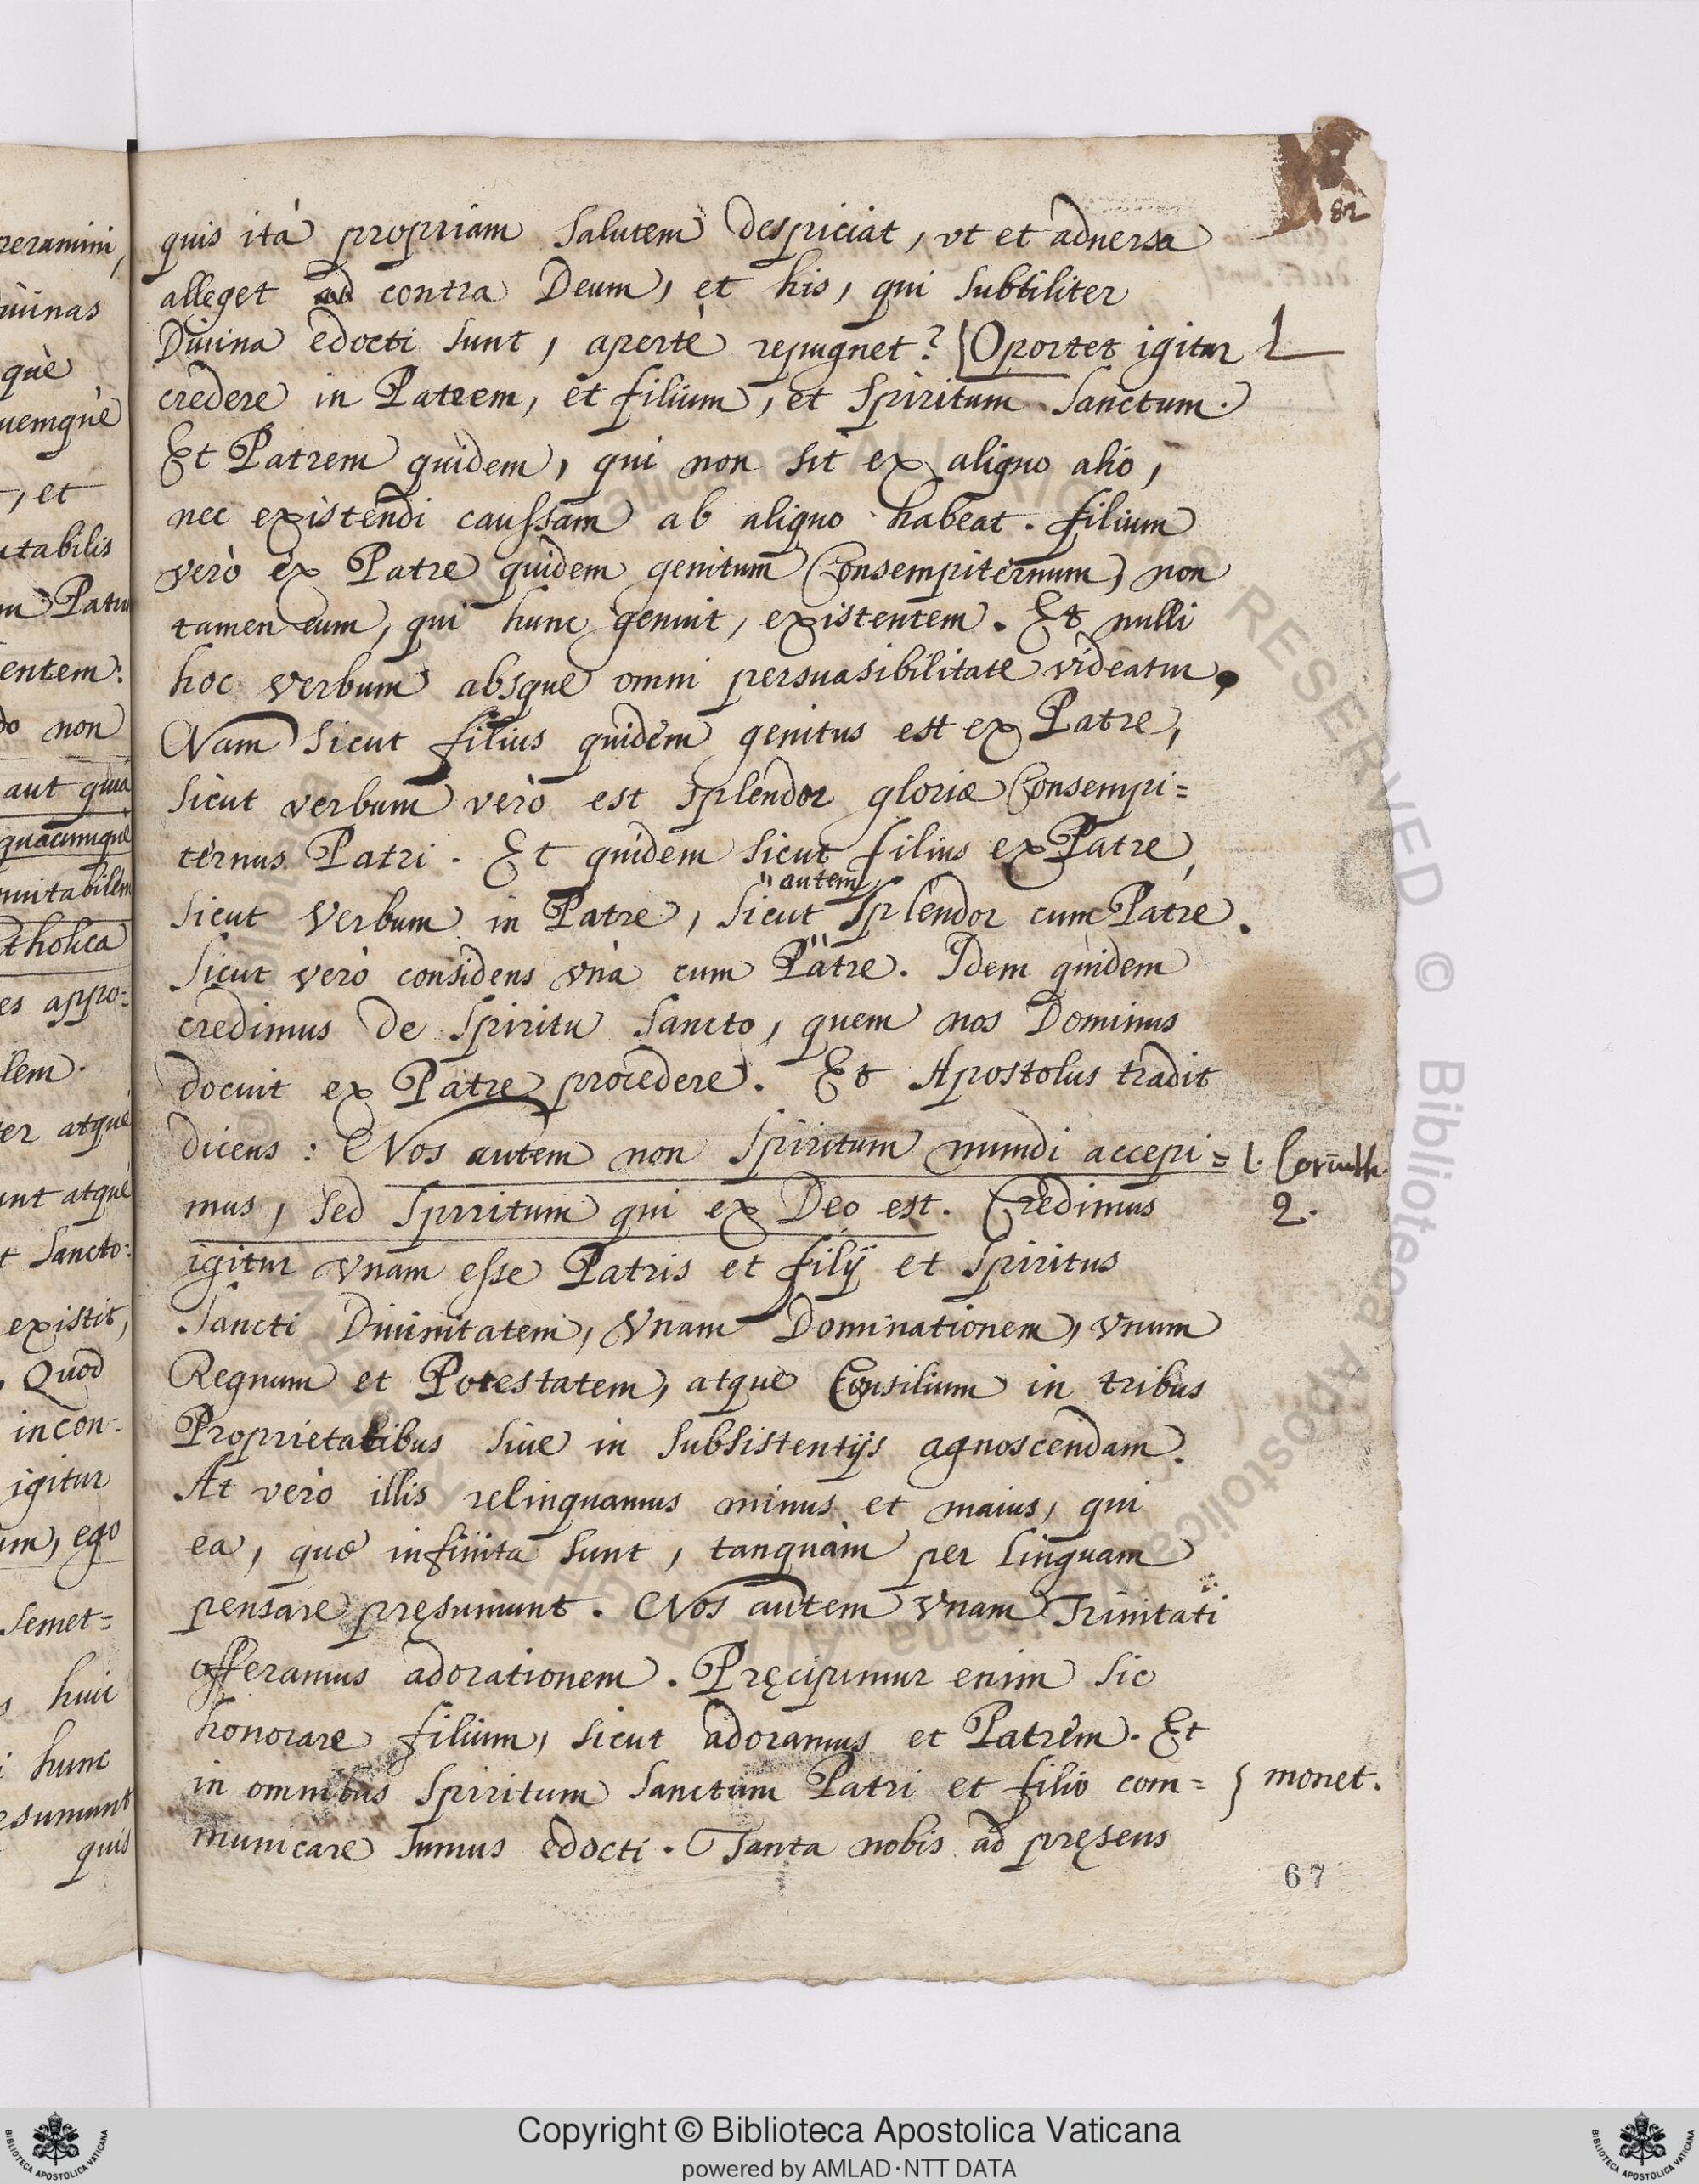 82
quis ità propriam salutem despiciat, vt et aduersa
alleget ad contra Deum, et his, qui subtiliter
Diuina edocti sunt, apertè repugnet? Oportet igitur
credere in Patrem, et filium, et spiritum sanctum.
Et Patrem quidem, qui non sit ex aliquo alio,
nec existendi caussam ab aliquo habeat. filium
verò ex Patre quidem genitum Consempiternum, non
tamen eum, qui hunc genuit, existentem. Et nulli
hoc verbum absque omni persuasibilitate videatur,
Nam sicut filius quidem genitus est ex Patre,
sicut verbum verò est splendor gloriæ Consempi=
ternus Patri. Et quidem sicut filius ex Patre,
autem
sicut verbum in Patre, sicut splendor cum Patre.
sicut verò considens vnà cum Patre. Idem quidem
credimus de spiritu sancto, quem nos Dominus
docuit ex Patre procedere. Et Apostolus tradit
dicens: Nos autem non spiritum mundi accepi=
1. Corinth.
mus, sed spiritum qui ex Deo est. Credimus
2.
igitur vnam esse Patris et filij et spiritus
sancti Diuinitatem, vnam Dominationem, vnum
Regnum et Potestatem, atque Consilium in tribus
Proprietatibus siue in subsistentijs agnoscendam.
At verò illis relinquamus minus et maius, qui
ea, quæ infinita sunt, tanquàm per linguam
pensare pręsumunt. Nos autem vnam Trinitati
offeramus adorationem. Pręcipimur enim sic
honorare filium, sicut adoramus et Patrem. Et
in omnibus spiritum sanctum Patri et filio com=
monet.
municare sumus edocti. Tanta nobis ad pręsens
67
reramini,
uinas
què
uemquè
, et
tabilis
Patri
entem:
non
aut quia
quacumquè
mutabilem
tholica
es appo=
lem.
er atquè
unt atquè
t sancto:
existit,
Quod
incon=
igitur
um, ego
semet=
huic
hunc
sumunt
quis
© Biblioteca Apostolica Vaticana ALL RIGHTS RESERVED
Copyright © Biblioteca Apostolica Vaticana
powered by AMLAD·NTT DATA
BIBLIOTECA APOSTOLICA VATICANA
BIBLIOTECA APOSTOLICA VATICANA